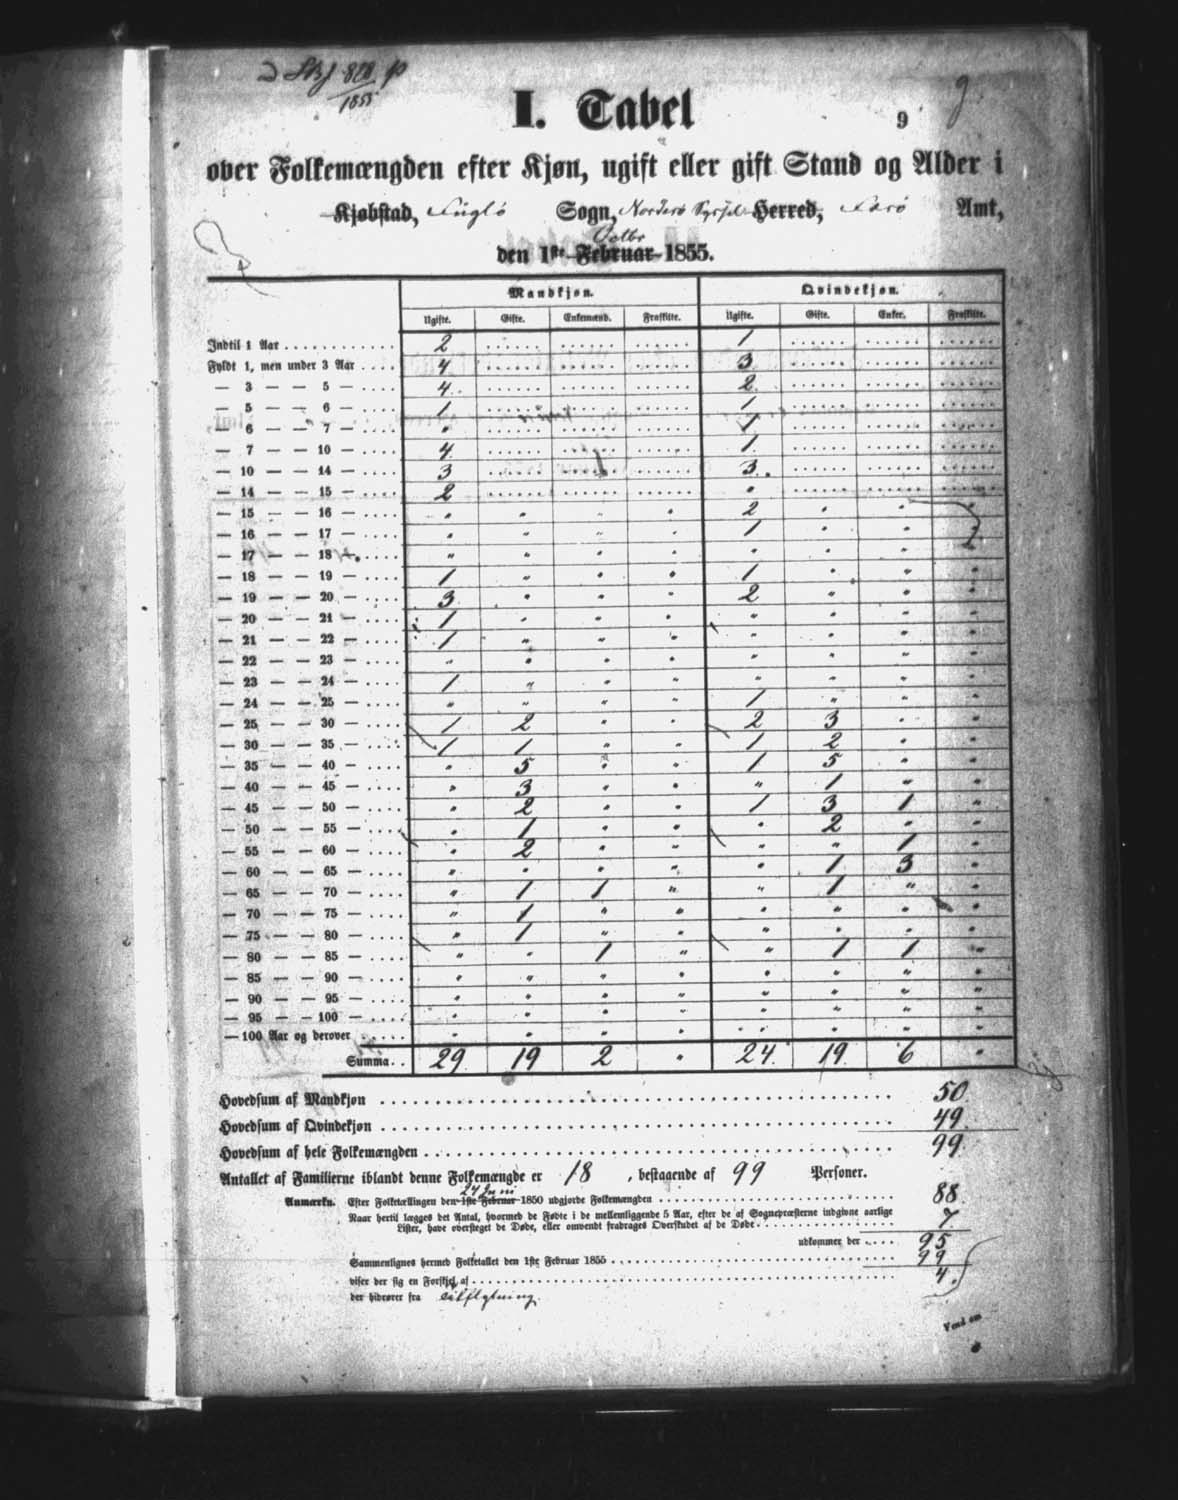 828
1855
I. Tabel
9
over Folkemængden efter Kjøn, ugift eller gift Stand og Alder i
Kjøbstad, Fuglö Sogn, Norderö Syssel Herred, Farö Amt,
Octbr
den 1ste Februar 1855.
Mandkjøn. Qvindekjøn.
Ugifte. Gifte. Enkemænd. Fraskilte. Ugifte. Gifte. Enker. Fraskilte.
Indtil 1 Aar 2 1
Fyldt 1, men under 3 Aar 4 3
— 3 — — 5 — 4 2
— 5 — — 6 — 1 1
— 6 — — 7 — " 1
— 7 — — 10 — 4 1
— 10 — — 14 — 3 3
— 14 — — 15 — 2 "
— 15 — — 16 — " " " " 2 " " "
— 16 — — 17 — " " " " 1 " " "
— 17 — — 18 — " " " " " " " "
— 18 — — 19 — 1 " " " 1 " " "
— 19 — — 20 — 3 " " " 2 " " "
— 20 — — 21 — 1 " " " " " " "
— 21 — — 22 — 1 " " " " " " "
— 22 — — 23 — " " " " " " " "
— 23 — — 24 — 1 " " " " " " "
— 24 — — 25 — " " " " 1 " " "
— 25 — — 30 — 1 2 " " 2 3 " "
— 30 — — 35 — 1 1 " " 1 2 " "
— 35 — — 40 — " 5 " " 1 5 " "
— 40 — — 45 — " 3 " " " 1 " "
— 45 — — 50 — " 2 " " 1 3 1 "
— 50 — — 55 — " 1 " " " 2 " "
— 55 — — 60 — " 2 " " " " 1 "
— 60 — — 65 — " " " " " 1 3 "
— 65 — — 70 — " 1 1 " " 1 " "
— 70 — — 75 — " 1 " " " " " "
— 75 — — 80 — " 1 " " " " " "
— 80 — — 85 — " " 1 " " 1 1 "
— 85 — — 90 — " " " " " " " "
— 90 — — 95 — " " " " " " " "
— 95 — — 100 — " " " " " " " "
— 100 Aar og derover " " " " " " " "
Summa 29 19 2 " 24 19 6 "
Hovedsum af Mandkjøn 50
Hovedsum af Qvindekjøn 49
Hovedsum af hele Folkemængden 99
Antallet af Familierne iblandt denne Folkemængde er 18, bestaaende af 99 Personer.
24 Juni
Anmærkn. Efter Folketællingen den 1ste Februar 1850 udgjorde Folkemængden 88
Naar hertil lægges det Antal, hvormed de Fødte i de mellemliggende 5 Aar, efter de af Sognepræsterne indgivne aarlige
Lister, have oversteget de Døde, eller omvendt fradrages Overskudet af de Døde 7
udkommer der 95
Sammenlignes hermed Folketallet den 1ste Februar 1855 99
viser der sig en Forskjel af 4.
der hidrører fra Tilflytning.
Vend om